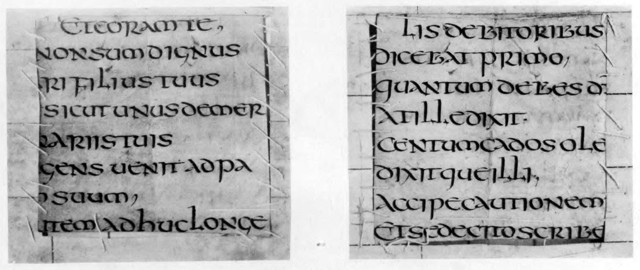 ETCORAMTE,
NONSUMDIGNUS
RIFILIUSTUUS
SICUTUNUSDEMER
NARIISTUIS
GENSUENITADPA
SUUM,
TEMADHUCLONGE
LISDEBITORIBUS
DICEBATPRIMO,
QUANTUMDEBESD
ATILLEDIXIT·
CENTUMCADOSOLE
DIXITQUEILLI,
ACCIPECAUTIONEM
ETSEDECITOSCRIBE